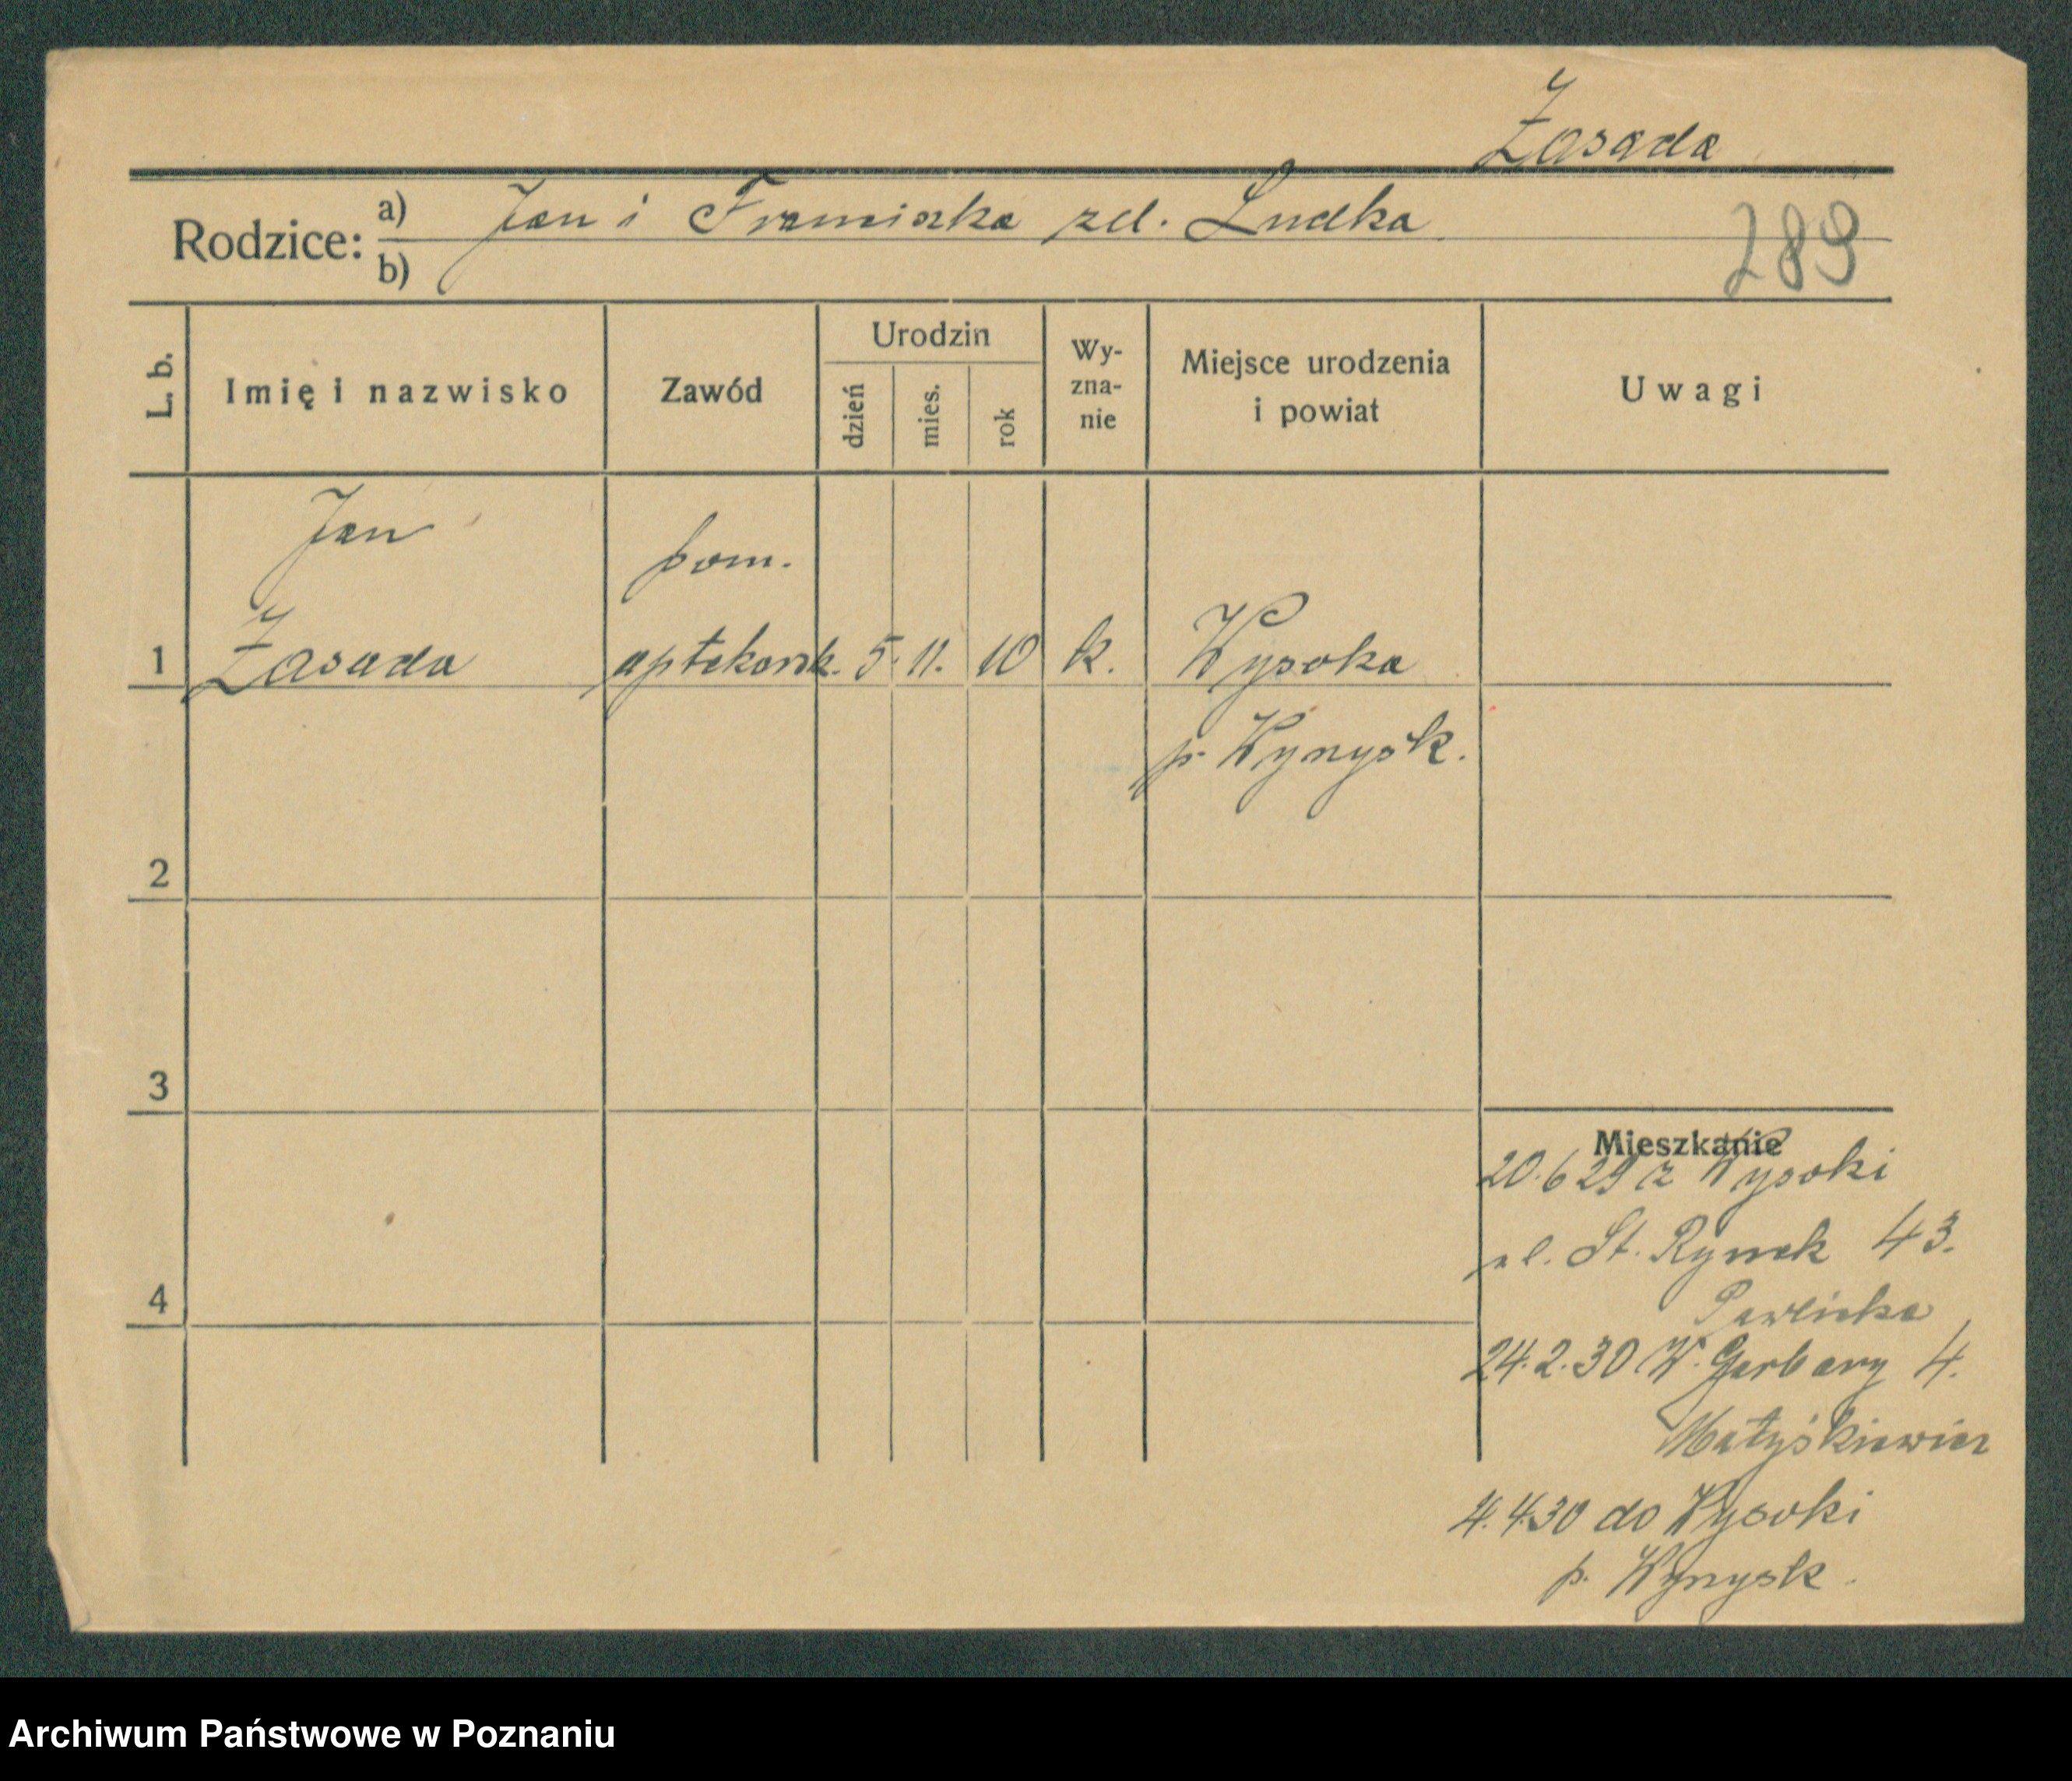 Zasada
Rodzice: a) Jan i Franciszka zd. Ludka
b)
289
L. b.
Imię i nazwisko
Zawód
Urodzin
dzień
mies.
rok
Wy-
zna-
nie
Miejsce urodzenia
i powiat
Uwagi
Jan
pom.
1 Zasada aptekarsk. 5. 11. 10 k. Wysoka
p. Wyrzysk.
2
3
Mieszkanie
20.6 29 z Wysoki
ul. St. Rynek 43.
Pawlicka
4
24.2.30 W. Garbary 4.
Matyśkiewicz
4.4.30 do Wysoki
p. Wyrzysk.
Archiwum Państwowe w Poznaniu